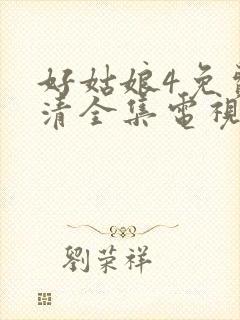 好姑娘4免
清全集電視
劉荣祥